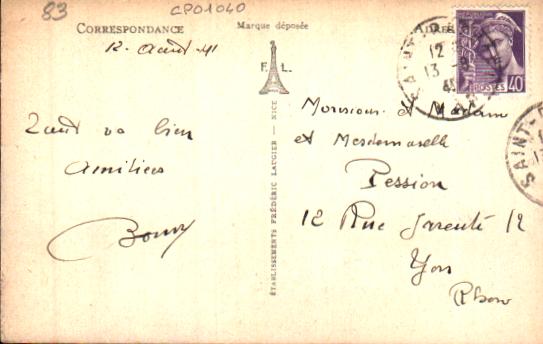 83
CPO1040
CORRESPONDANCE
Marque déposée
12. Août 41
F. L.
Tout va bien
Amitiés
ÉTABLISSEMENTS FRÉDÉRIC LAUGIER - NICE
POSTES 40
SAINT-
12
13
Monsieur et Madame
et Mesdemoiselle
Pession
12 Rue Sarenté 12
Lyon
Rhone
SAINT-